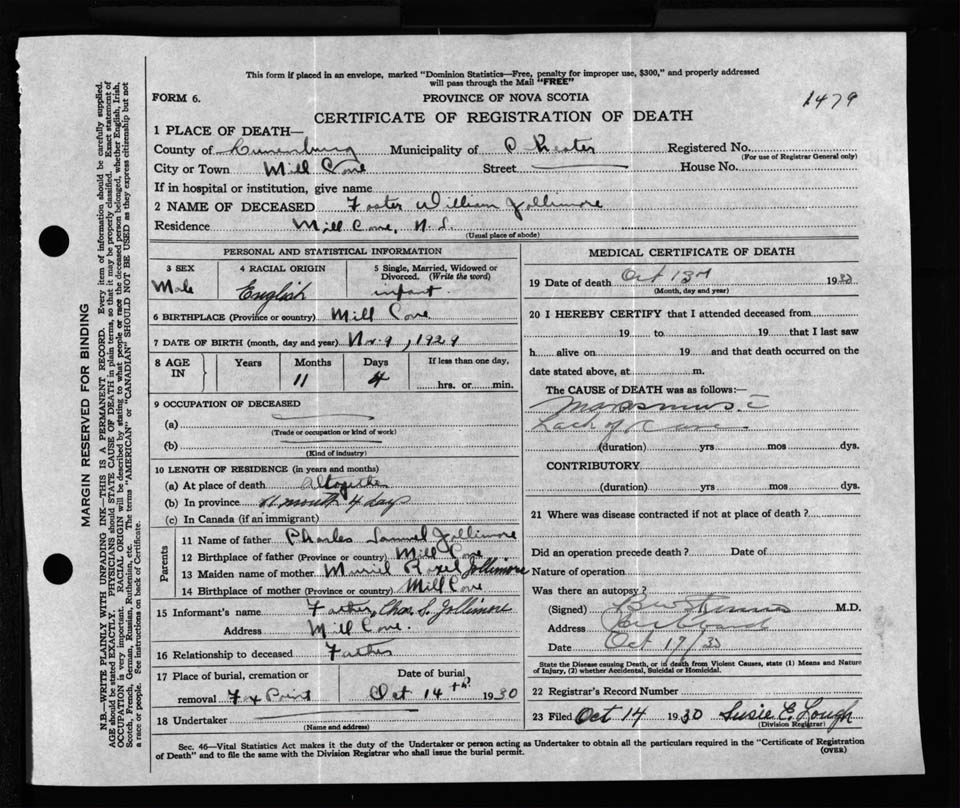 This form if placed in an envelope, marked "Dominion Statistics—Free, penalty for improper use, $300," and properly addressed
will pass through the Mail "FREE"
FORM 6.
PROVINCE OF NOVA SCOTIA
1479
CERTIFICATE OF REGISTRATION OF DEATH
1 PLACE OF DEATH—
County of Lunenburg Municipality of Chester Registered No.
(For use of Registrar General only)
City or Town Mill Cove Street House No.
If in hospital or institution, give name
2 NAME OF DECEASED Foster William Jollimore
Residence Mill Cove, N.S.
(Usual place of abode)
PERSONAL AND STATISTICAL INFORMATION
3 SEX Male
4 RACIAL ORIGIN English
5 Single, Married, Widowed or Divorced. (Write the word) infant
6 BIRTHPLACE (Province or country) Mill Cove
7 DATE OF BIRTH (month, day and year) Nov. 9, 1929
8 AGE IN Years Months 11 Days 4 If less than one day, hrs. or min.
9 OCCUPATION OF DECEASED
(a)
(Trade or occupation or kind of work)
(b)
(Kind of industry)
10 LENGTH OF RESIDENCE (in years and months)
(a) At place of death Altogether
(b) In province 11 month 4 days
(c) In Canada (if an immigrant)
Parents
11 Name of father Charles Samuel Jollimore
12 Birthplace of father (Province or country) Mill Cove
13 Maiden name of mother Jollimore
14 Birthplace of mother (Province or country) Mill Cove
15 Informant's name Father, Chas. S. Jollimore
Address Mill Cove.
16 Relationship to deceased Father
17 Place of burial, cremation or removal Fox Point
Date of burial Oct 14th 1930
18 Undertaker
(Name and address)
MEDICAL CERTIFICATE OF DEATH
19 Date of death Oct 13th 1930
(Month, day and year)
20 I HEREBY CERTIFY that I attended deceased from
19 to 19 that I last saw
h alive on 19 and that death occurred on the
date stated above, at m.
The CAUSE of DEATH was as follows:—
Marasmus c̄
Lack of Care
(duration) yrs mos dys.
CONTRIBUTORY
(duration) yrs. mos. dys.
21 Where was disease contracted if not at place of death?
Did an operation precede death? Date of
Nature of operation
Was there an autopsy?
(Signed) M.D.
Address Hubbards
Date Oct 17/30
State the Disease causing Death, or in death from Violent Causes, state (1) Means and Nature
of Injury, (2) whether Accidental, Suicidal or Homicidal.
22 Registrar's Record Number
23 Filed Oct 14 1930 Susie E. Lough
(Division Registrar)
Sec. 46—Vital Statistics Act makes it the duty of the Undertaker or person acting as Undertaker to obtain all the particulars required in the "Certificate of Registration
of Death" and to file the same with the Division Registrar who shall issue the burial permit.
(OVER)
MARGIN RESERVED FOR BINDING
N.B. WRITE PLAINLY WITH UNFADING INK—THIS IS A PERMANENT RECORD. Every item of information should be carefully supplied.
AGE should be stated EXACTLY. PHYSICIANS should STATE CAUSE OF DEATH in plain terms, so that it may be properly classified. Exact statement of
OCCUPATION is very important. RACIAL ORIGIN will be described by stating to what people or race the deceased person belonged, whether English, Irish,
Scotch, French, German, Russian, Ruthenian, etc. The terms "AMERICAN" or "CANADIAN" SHOULD NOT BE USED as they express citizenship but not
a race or people. See instructions on back of Certificate.